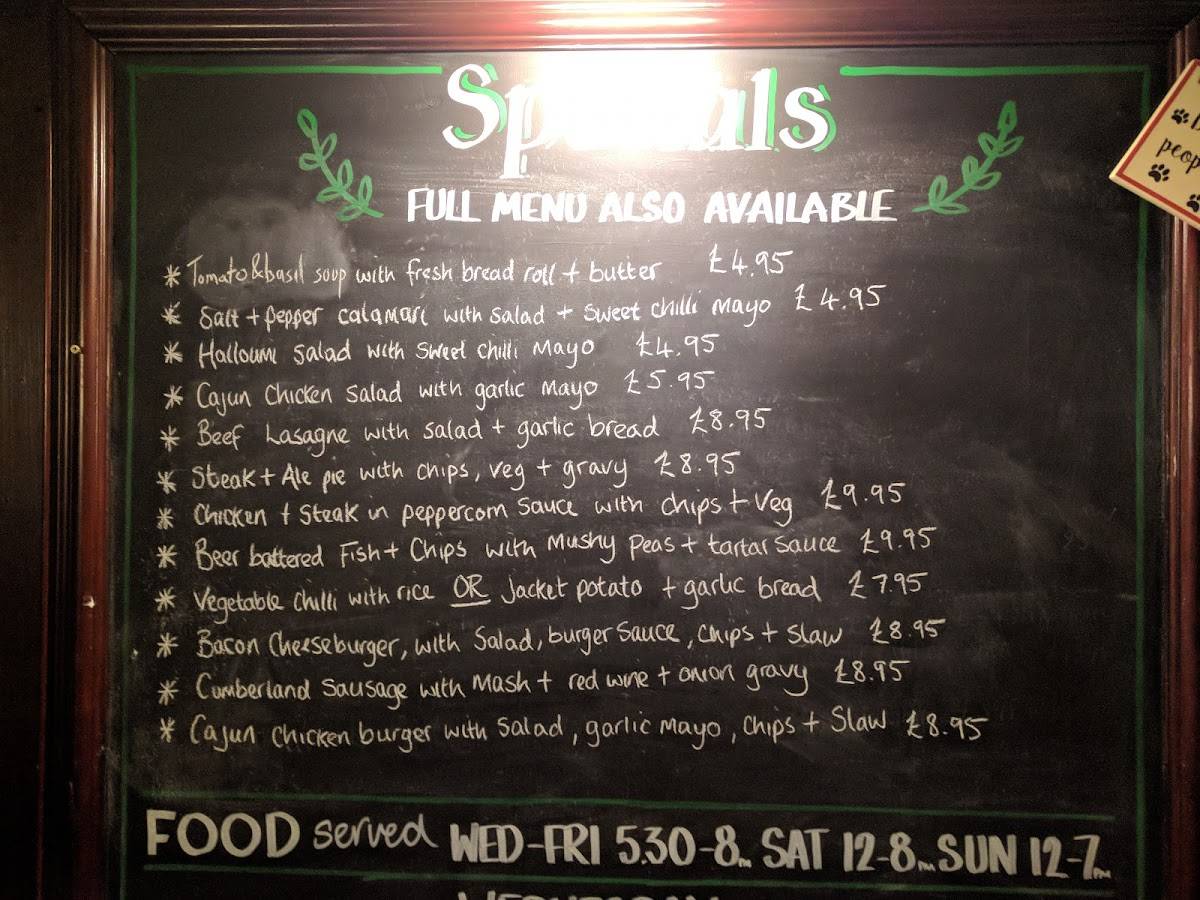 Specials
FULL MENU ALSO AVAILABLE
* Tomato & basil soup with fresh bread roll + butter £4.95
* Salt + pepper calamari with salad + sweet chilli mayo £4.95
* Halloumi salad with sweet chilli mayo £4.95
* Cajun chicken salad with garlic mayo £5.95
* Beef Lasagne with salad + garlic bread £8.95
* Steak + Ale pie with chips, veg + gravy £8.95
* Chicken + Steak in peppercorn sauce with chips + veg £9.95
* Beer battered Fish + Chips with mushy peas + tartar sauce £9.95
* Vegetable chilli with rice OR Jacket potato + garlic bread £7.95
* Bacon Cheeseburger, with salad, burger sauce, chips + slaw £8.95
* Cumberland sausage with mash + red wine + onion gravy £8.95
* Cajun chicken burger with salad, garlic mayo, chips + slaw £8.95
FOOD served WED-FRI 5.30-8PM SAT 12-8PM SUN 12-7PM
WEDNESDAY